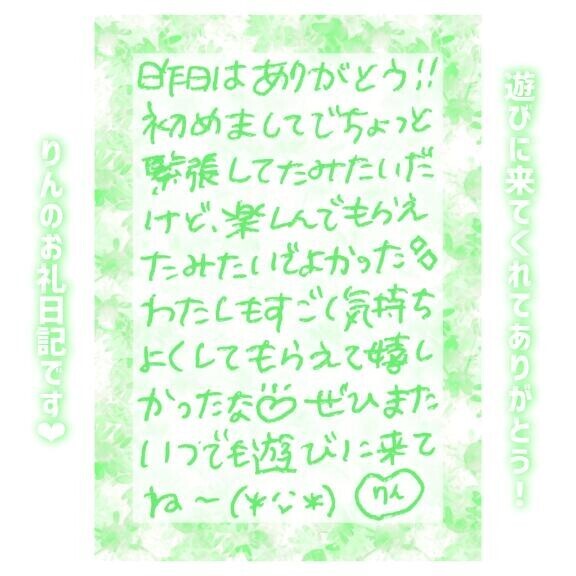 遊びに来てくれてありがとう！
昨日はありがとう!!
初めましてでちょっと
緊張してたみたいだ
けど、楽しんでもらえ
たみたいでよかった
わたしもすごく気持ち
よくしてもらえて嬉し
かったな♡ ぜひまた
いつでも遊びに来て
ね〜(*ᵕᵕ*) りん
りんのお礼日記です❤